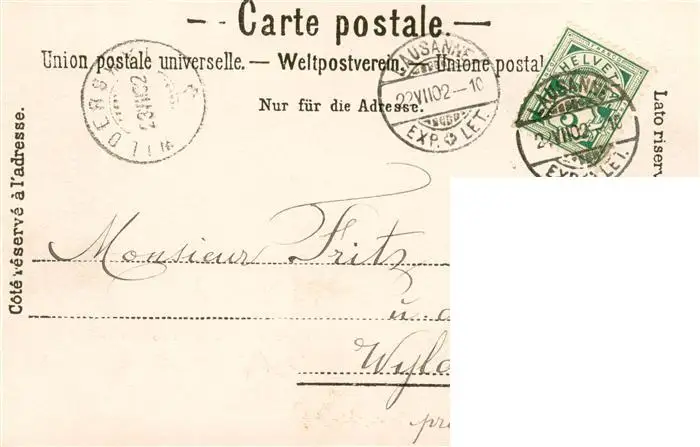 Carte postale.
Union postale universelle. — Weltpostverein. — Unione postal
Nur für die Adresse.
Côté réservé à l'adresse.
Lato riserv
LAUSANNE
22 VII 02 – 10
EXP. LET.
HELVET
LAUSANNE
22 VII 02 – 10
EXP. LET.
23 VII 02
Monsieur Fritz
u.
Wyl